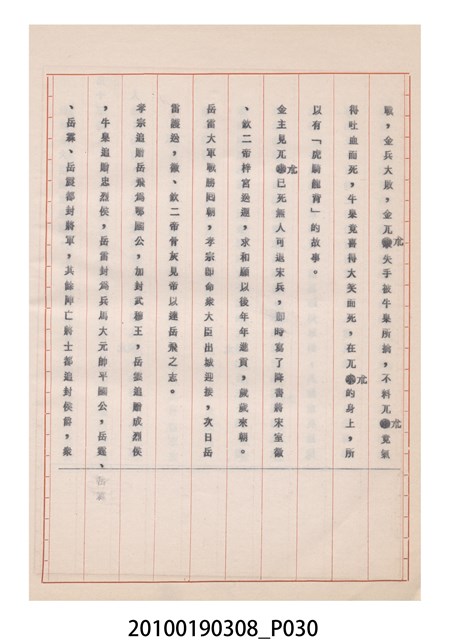 戰，金兵大敗，金兀朮失手被牛皋所擒，不料兀朮竟氣
得吐血而死，牛皋竟喜得大笑而死，在兀朮的身上，所
以有「虎騎龍背」的故事。
金主見兀朮已死無人可退宋兵，即時寫了降書將宋室徽
、欽二帝梓宮送還，求和願以後年年進貢，歲歲來朝。
岳雷大軍戰勝回朝，孝宗即命眾大臣出城迎接，次日岳
雷護送，徽、欽二帝骨灰見帝以達岳飛之志。
孝宗追贈岳飛為鄂國公，加封武穆王，岳雲追贈成烈侯
，牛皋追贈忠烈侯，岳雷封為兵馬大元帥平國公，岳霆、岳
、岳霖、岳震都封將軍，其餘陣亡將士都追封侯爵，眾
20100190308_P030